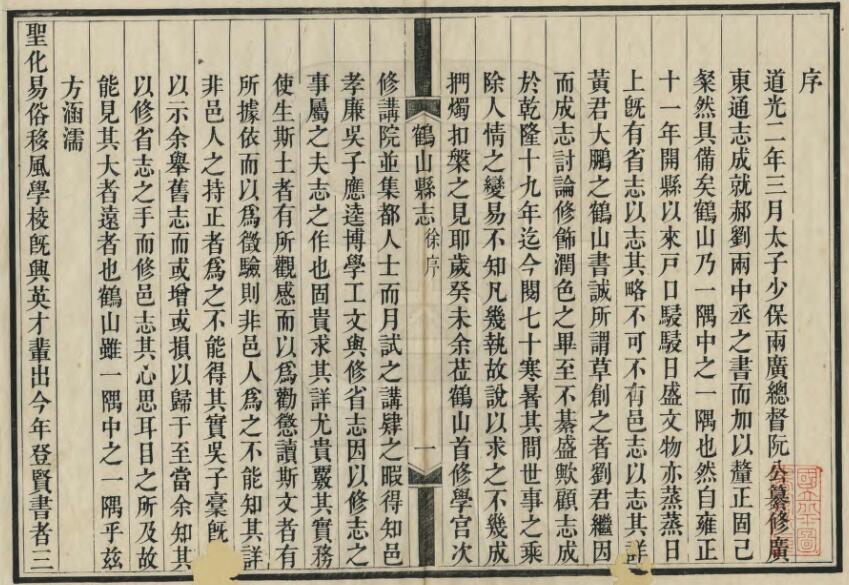 序
道光二年三月太子少保兩廣總督阮公纂修廣
東通志成就郝劉兩中丞之書而加以釐正固已
粲然具備矣鶴山乃一隅中之一隅也然自雍正
十一年開縣以來戸口駸駸日盛文物亦蒸蒸日
上旣有省志以志其略不可不有邑志以志其詳
黃君大鵬之鶴山書誠所謂草創之者劉君繼因
而成志討論修飾潤色之畢至不綦盛歟顧志成
於乾隆十九年迄今閱七十寒暑其間世事之乘
除人情之變易不知凡幾執故說以求之不幾成
捫燭扣槃之見耶歲癸未余莅鶴山首修學宮次
鶴山縣志 徐序 一
修講院並集都人士而月試之講肄之暇得知邑
孝廉吳子應逵博學工文與修省志因以修志之
事屬之夫志之作也固貴求其詳尤貴覈其實務
使生斯土者有所觀感而以爲勸懲讀斯文者有
所據依而以爲徵驗則非邑人爲之不能知其詳
非邑人之持正者爲之不能得其實吳子稾旣
以示余舉舊志而或增或損以歸于至當余知其
以修省志之手而修邑志其心思耳目之所及故
能見其大者遠者也鶴山雖一隅中之一隅乎茲
方涵濡
聖化易俗移風學校旣興英才輩出今年登賢書者三